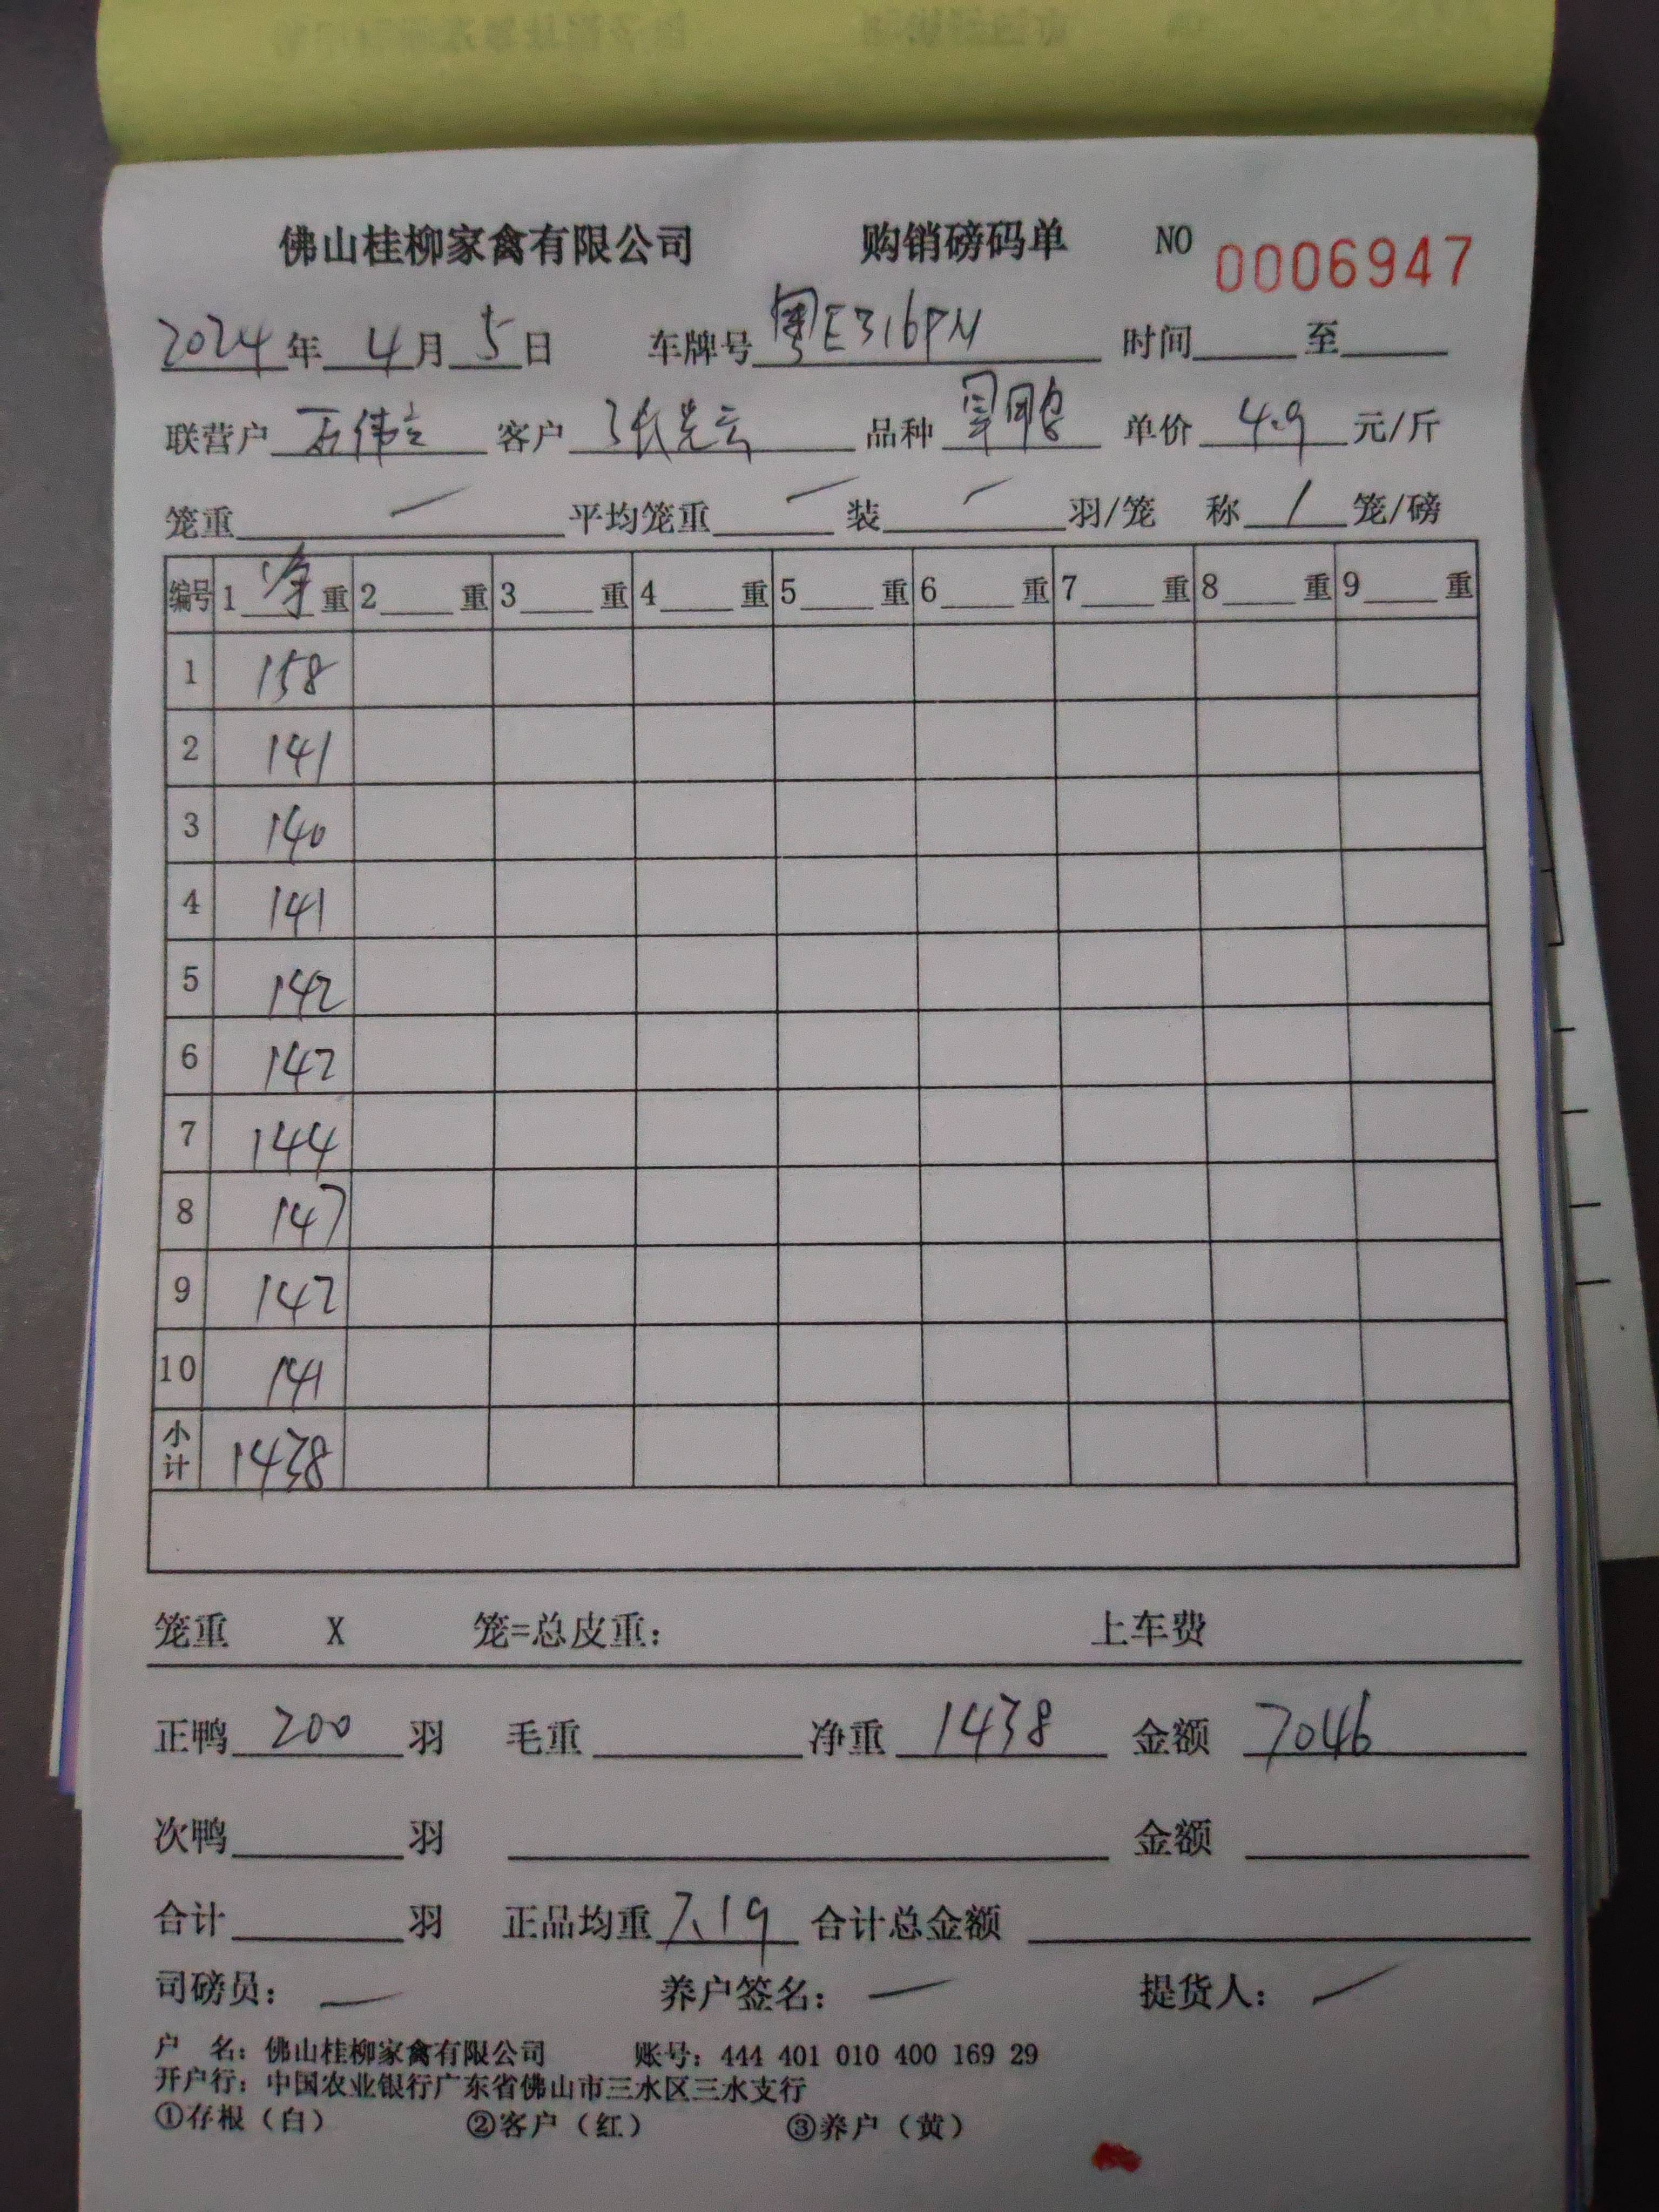 佛山桂柳家禽有限公司 购销磅码单 NO 0006947
2024年 4月 5日 车牌号 粤E316PM 时间 至
联营户 伟立 客户 张先云 品种 鸭 单价 4.9 元/斤
笼重 — 平均笼重 — 装 — 羽/笼 称 1 笼/磅
编号 1 净 重 2 重 3 重 4 重 5 重 6 重 7 重 8 重 9 重
1 158
2 141
3 140
4 141
5 142
6 142
7 144
8 147
9 142
10 141
小计 1438
笼重 X 笼=总皮重: 上车费
正鸭 200 羽 毛重 净重 1438 金额 7046
次鸭 羽 金额
合计 羽 正品均重 7.19 合计总金额
司磅员: — 养户签名: — 提货人: —
户 名: 佛山桂柳家禽有限公司 账号: 444 401 010 400 169 29
开户行: 中国农业银行广东省佛山市三水区三水支行
①存根（白） ②客户（红） ③养户（黄）